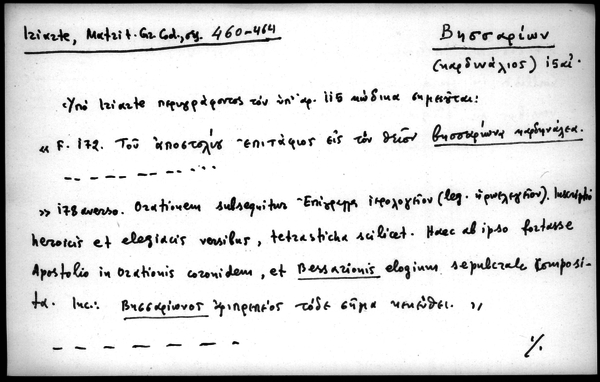 Iriarte, Matrit. Gr. Cod., σ. 460-464
Βησσαρίων
(καρδινάλιος) 15 αἰ.
Ὑπὸ Iriarte περιγράφοντος τὸν ὑπ' ἀρ. 115 κώδικα σημειοῦται:
« F. 172. Τοῦ ἀποστόλου Ἐπιτάφιος εἰς τὸν θεῖον βησσαρίωνα καρδηνάλεα.
» 178 averso. Orationem subsequitur Ἐπίγραμμα ἱερολογεῖον (leg. ἡρωελεγεῖον). Inscriptio
heroicis et elegiacis versibus, tetrasticha scilicet. Haec ab ipso fortasse
Apostolio in Orationis coronidem, et Bessarionis elogium sepulcrale composi-
ta. Inc.: Βησσαρίωνος τόδε σῆμα κεκεύθει. »
%